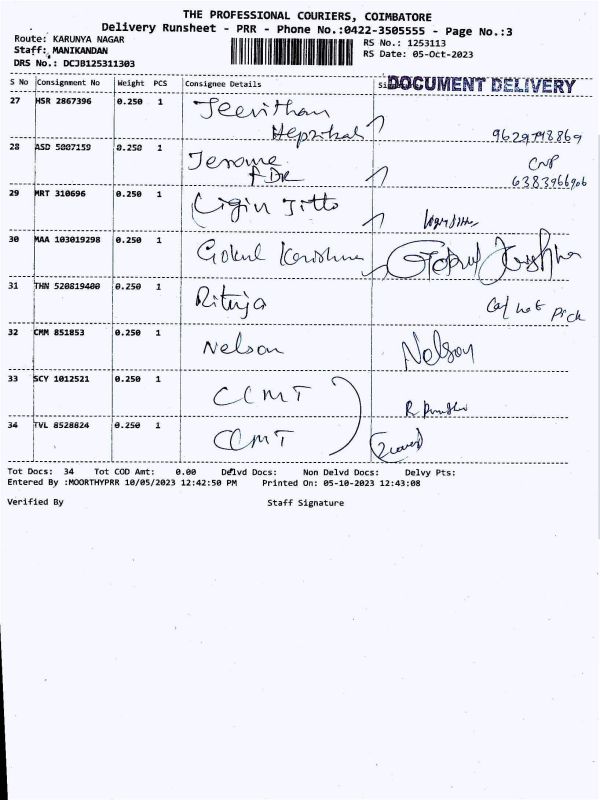 THE PROFESSIONAL COURIERS, COIMBATORE
Delivery Runsheet - PRR - Phone No.:0422-3505555 - Page No.:3
Route: KARUNYA NAGAR
RS No.: 1253113
Staff: MANIKANDAN
RS Date: 05-Oct-2023
DRS No.: DCJB125311303
S No Consignment No Weight PCS Consignee Details
DOCUMENT DELIVERY
27 HSR 2867396 0.250 1 Jeevitham
Hepzibah
28 ASD 5007159 0.250 1 Jerome
CNP
6383966906
29 MRT 310696 0.250 1 Ligin Jitto
30 MAA 103019298 0.250 1 Gokul Krishna Gokul Krishna
31 THN 520819400 0.250 1 Rituja
not Pick
32 CMM 851853 0.250 1 Nelson Nelson
33 SCY 1012521 0.250 1 CCMT
34 TVL 8528824 0.250 1 CCMT
Tot Docs: 34 Tot COD Amt: 0.00 Delvd Docs: Non Delvd Docs: Delvy Pts:
Entered By :MOORTHYPRR 10/05/2023 12:42:50 PM Printed On: 05-10-2023 12:43:08
Verified By Staff Signature